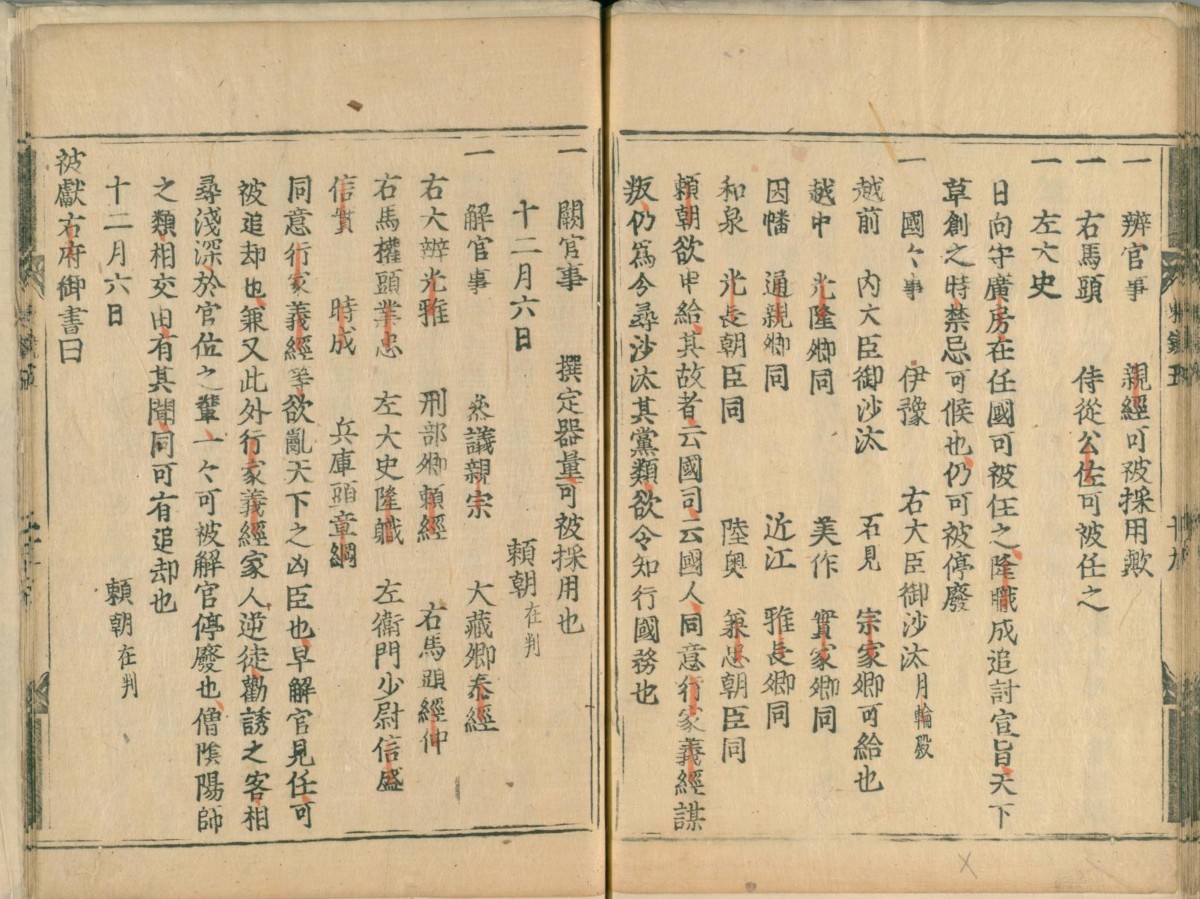 一 辨官事 親經可被採用歟
一 右馬頭 侍從公佐可被任之
一 左大史
日向守廣房在任國可被任之隆職成追討宣旨天下
草創之時禁忌可候也仍可被停廢
一 國々事 伊豫 右大臣御沙汰月輪殿
越前 内大臣御沙汰 石見 宗家卿可給也
越中 光隆卿同 美作 實家卿同
因幡 通親卿同 近江 雅長卿同
和泉 光長朝臣同 陸奥 兼忠朝臣同
賴朝欲申給其故者云國司云國人同意行家義經謀
叛仍爲令尋沙汰其黨類欲令知行國務也
一 闕官事 撰定器量可被採用也
十二月六日 賴朝在判
一 解官事 叅議親宗 大藏卿泰經
右大辨光雅 刑部卿賴經 右馬頭經仲
右馬權頭業忠 左大史隆職 左衛門少尉信盛
信實 時成 兵庫頭章綱
同意行家義經等欲亂天下之凶臣也早解官見任可
被追却也兼又此外行家義經家人逆徒勸誘之客相
尋淺深於官位之輩一々可被解官停廢也僧陰陽師
之類相交由有其聞同可有追却也
十二月六日 賴朝在判
被獻右府御書曰